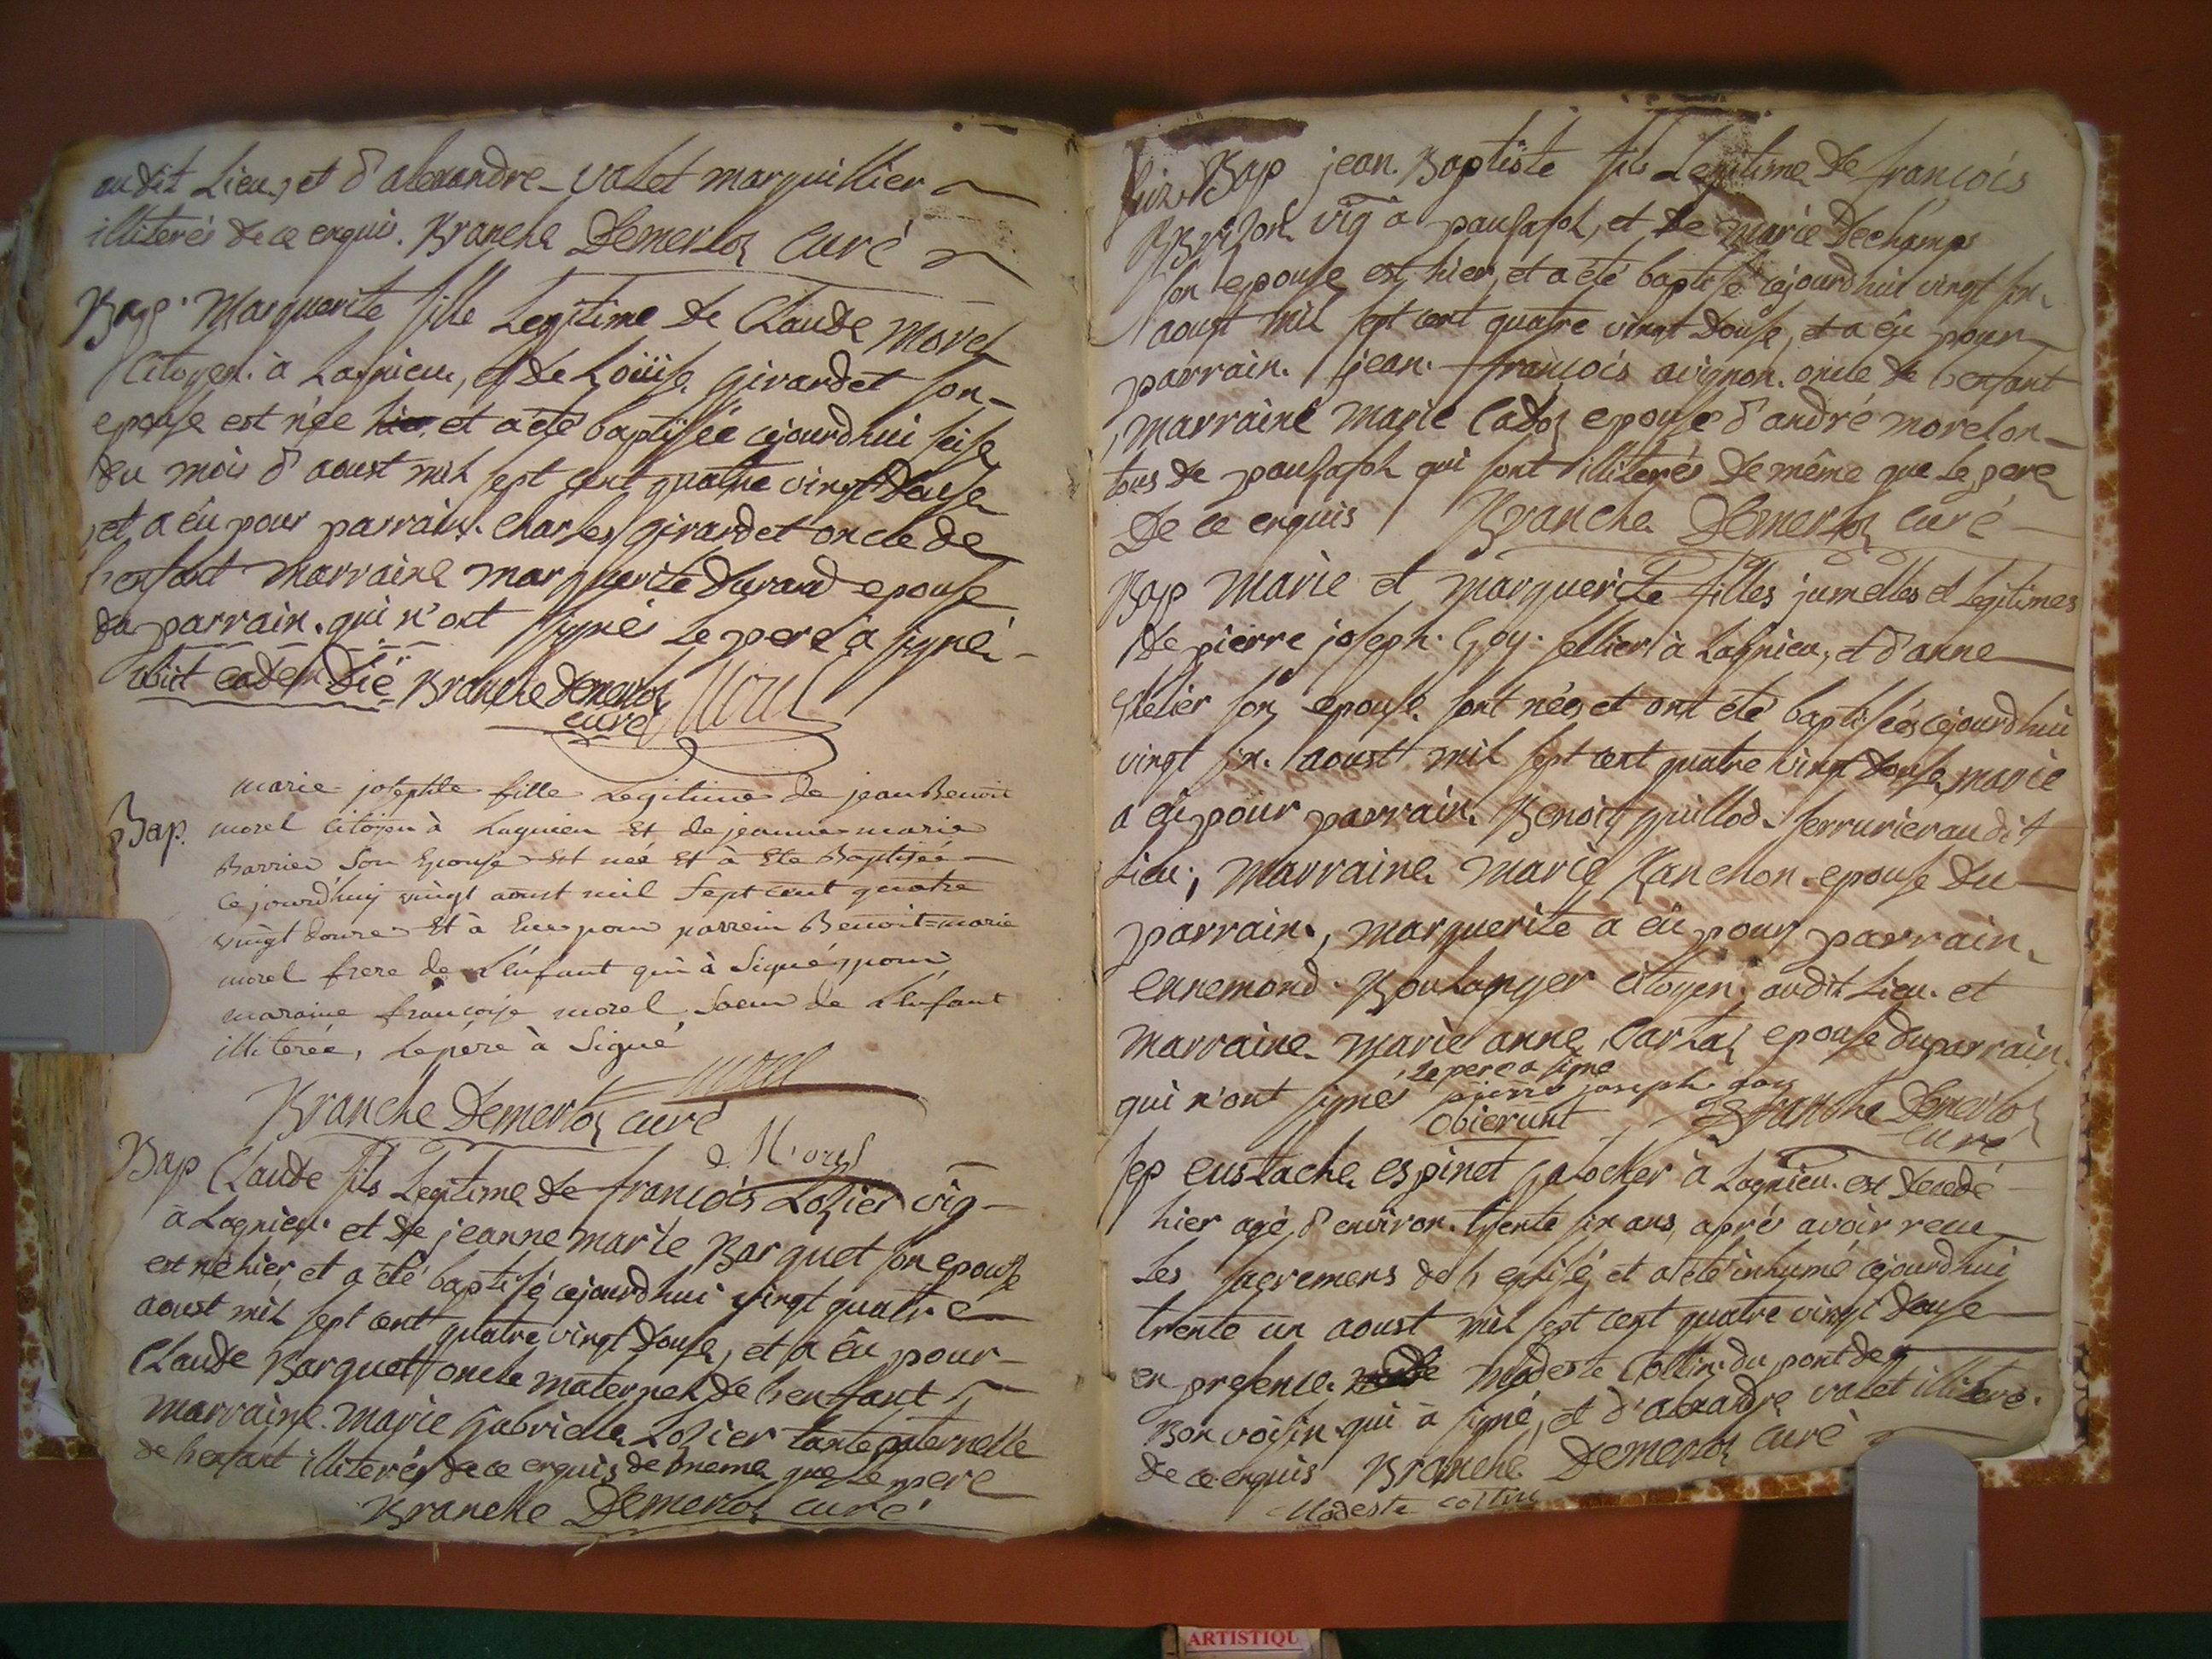 audit Lieu, et d'alexandre valet marguillier
illiterés de ce enquis. Branche Demerloz Curé
Bap. Marguerite fille Legitime de Claude morel
Citoyen à Lagnieu, et de Loüise Girardet son
epouse est née hier et a été baptisée cejourdhui seise
du mois d'aoust mil sept cent quatre vingt douse
et a eû pour parrain Charles girardet oncle de
l'enfant marraine marguerite durand epouse
du parrain qui n'ont signés le pere a signé
obiit eadem die Branche Demerloz
curé Morel
marie josephte fille Legitime de jean Benoit
Bap. morel Citoyen à Lagnieu Et de jeanne marie
Barrier Son Epouse Est née Et à Ete Baptisée
Cejourd'huy vingt aoust mil Sept cent quatre
vingt douze Et à Eue pour parrein Benoit=marie
morel frere de L'enfant qui à Signé, pour
maraine francoise morel Soeur de L'enfant
illiterée, Le pere à Signé
morel
Branche Demerloz curé
Morel
Bap Claude fils Legitime de francois Lozier vig
à Lagnieu et de jeanne marie Barquet son epouse
est né hier et a été baptisé cejourdhui vingt quatre
aoust mil sept cent quatre vingt douse, et a eû pour
Claude Barquet oncle maternel de l'enfant
marraine marie gabrielle Lozier tante paternelle
de l'enfant illiterés de ce enquis de meme que le pere
Branche Demerloz curé
Bap jean Baptiste fils Legitime de francois
Brison vig à pousafol, et de marie Dechamps
son epouse est hier, et a été baptisé cejourdhui vingt six
aoust mil sept cent quatre vingt douse, et a eû pour
parrain jean francois avignon oncle de l'enfant
marraine marie Cadoz epouse d'andré morelon
tous de pousafol qui sont illiterés de même que le pere
De ce enquis Branche Demerloz curé
Bap marie et marguerite filles jumelles et legitimes
de pierre joseph Goy sellier à Lagnieu, et d'anne
son epouse sont nées et ont été baptisées cejourdhui
vingt six aoust mil sept cent quatre vingt douse, marie
a eû pour parrain Benoit guillod serrurier audit
Lieu, marraine marie Ranchon epouse du
parrain, marguerite a eû pour parrain
ennemond Boulanger citoyen audit Lieu et
marraine marie anne Cartaz epouse du parrain
Le pere a signé
qui n'ont signés pierre joseph goy
obierunt Branche Demerloz
curé
Sep eustache espinet galocher à Lagnieu est decedé
hier agé d'environ trente six ans, aprés avoir reçu
Les sacremens de l'eglise, et a été inhumé cejourdhui
trente un aoust mil sept cent quatre vingt douse
en presence modeste Collin du pont de
Bonvoisin qui à signé, et d'alexandre valet illiteré
de ce enquis Branche Demerloz curé
Modeste collin
ARTISTIQU